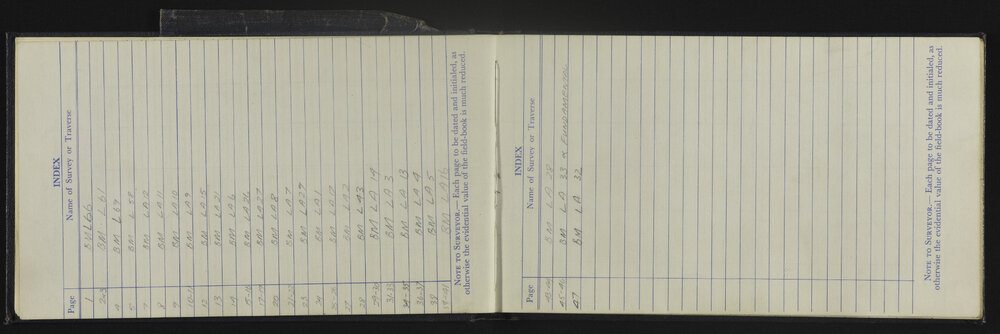 INDEX
Page Name of Survey or Traverse
1 BM L66
2-3 BM L 61
4 BM L 59
5 BM L 58
7 BM LA 12
8 BM LA 11
9 BM LA 10
10-11 BM LA 9
12 BM LA 5
13 BM LA 21
14 BM LA 6
15-16 BM LA 26
17-19 BM LA 27
20 BM LA 8
21-22 BM LA 7
23 BM LA 29
24 BM LA 1
BM LA 17
27 BM LA 2
28 BM LA 3
29-30 BM LA 19
31-33 BM LA 3
34-35 BM LA 13
36-37 BM LA 4
38 BM LA 5
BM LA 16
NOTE TO SURVEYOR.— Each page to be dated and initialed, as
otherwise the evidential value of the field-book is much reduced.
INDEX
Page Name of Survey or Traverse
BM LA 28
45-46 BM LA 33 & FUNDAMENTAL
47 BM LA 32
NOTE TO SURVEYOR.— Each page to be dated and initialed, as
otherwise the evidential value of the field-book is much reduced.